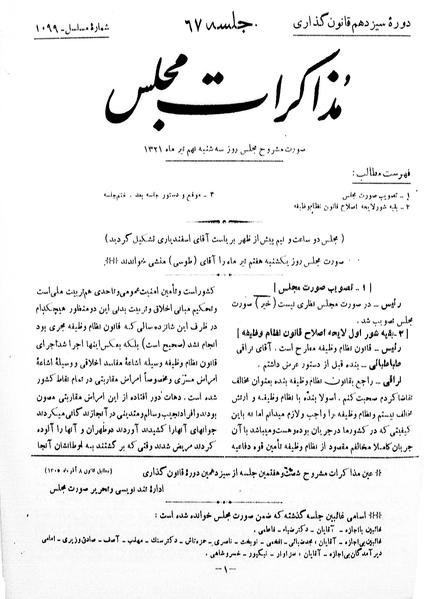 دورهٔ سیزدهم قانون گذاری
جلسه ۶۷
شمارهٔ مسلسل - ۱۰۹۹
مذاکرات مجلس
صورت مشروح مجلس روز سه شنبه نهم تیر ماه ۱۳۲۱
فهرست مطالب:
۱ - تصویب صورت مجلس
۲ - بقیه شور لایحه اصلاح قانون نظام وظیفه
۳ - موقع و دستور جلسه بعد . ختم جلسه
(مجلس دو ساعت و نیم پیش از ظهر بریاست آقای اسفندیاری تشکیل گردید)
صورت مجلس روز یکشنبه هفتم تیر ماه را آقای (طوسی) منشی خواندند
[ ۱ - تصویب صورت مجلس ]
رئیس ـ در صورت مجلس نظری نیست (خیر) صورت
مجلس تصویب شد.
[۲-بقیه شور اول لایحه اصلاح قانون نظام وظیفه]
رئیس ـ قانون نظام وظیفه مطرح است. آقای نراقی
طباطبائی ـ بنده قبل از دستور عرض داشتم.
نراقی ـ راجع بقانون نظام وظیفه بنده بعنوان مخالف
تقاضا کردم صحبت کنم. اصولا بنده با نظام وظیفه و ارتش
مخالف نیستم و نظام وظیفه را واجب ولازم میدانم اما نه باین
کیفیتی که در کشورما در جریان بوده و هست و میباشد با آن
جریان کاملا مخالفم مقصود از نظام وظیفه تأمین قوه دفاعیه
کشور است و تأمین امنیت عمومی و تاحدی هم تربیت ملی است
و تحکیم مبانی اخلاق و تربیت بدنی این دو منظور هیچکدام
در ظرف این شانزده سالی که قانون نظام وظیفه مجری بود
انجام نشد (صحیح است) بلکه بعکس اینها اجرا شد اجرای
قانون نظام وظیفه وسیله اشاعهٔ مفاسد اخلاقی و وسیلهٔ اشاعهٔ
امراض مسری و مخصوصاً امراض مقاربتی در تمام نقاط کشور
شده است. دهات دور افتاده از این امراض مقاربتی مصون
بودند و افراد نجیب و سالم و متدینی در آنجا زندگانی میکردند
جوانهای آنها را کشیدند آوردند در طهران و آنها را آلوده
کردند مریض شدند وقتی که بر گشتند به اوطانشان آنجا
عین مذاکرات مشروح شصت و هفتمین جلسه از سیزدهمین دورهٔ قانون گذاری
(مطابق قانون ۸ آذرماه ۱۳۰۵)
ادارهٔ تند نویسی و تحریر صورت مجلس
اسامی غائبین جلسه گذشته که ضمن صورت مجلس خوانده شده است:
غائبین با اجازه ـ آقایان ـ دکتر ضیاء ـ فاطمی.
غائبین بی اجازه ـ آقایان ـ مجد ضیائی ـ افخمی ـ نوبخت ـ ناصری ـ حمزه تاش ـ دکتر سنگ ـ مهذب ـ آصف ـ صادق وزیری ـ امامی
دیر آمدگان بی اجازه ـ آقایان ـ سزاوار ـ نیکپور ـ خسروشاهی.
ـ ۱ ـ